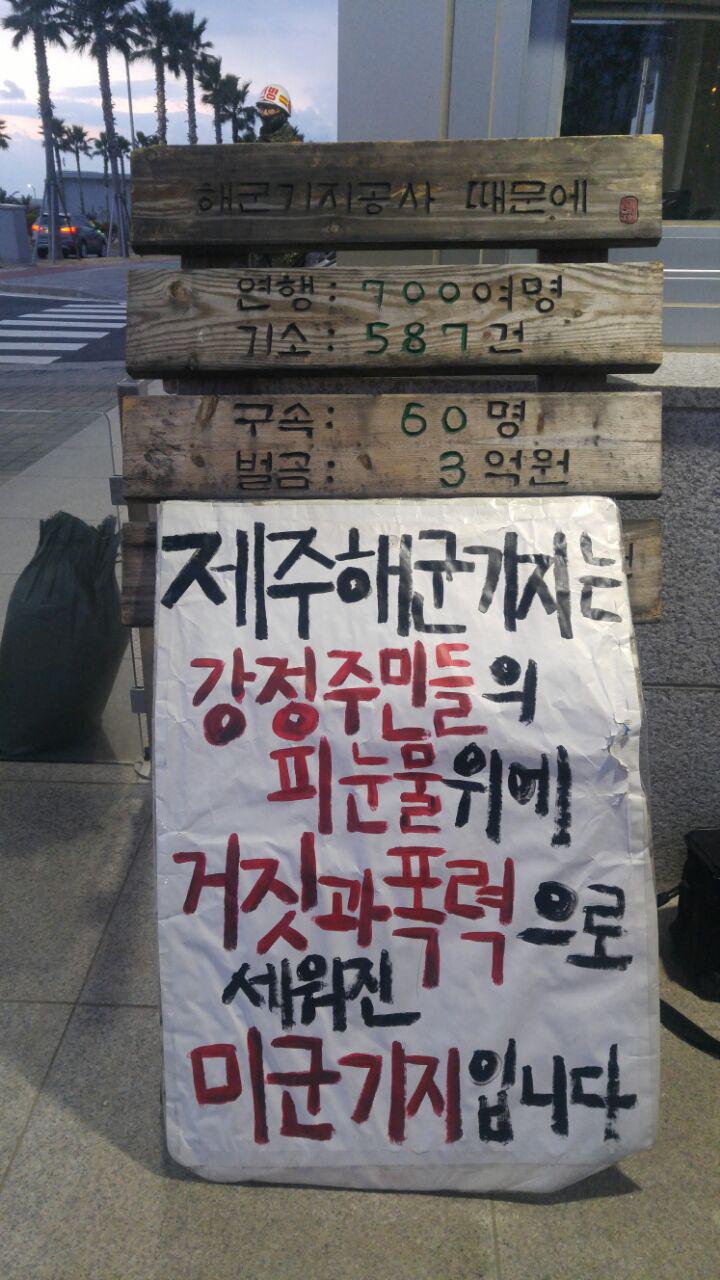 해군기지공사 때문에
연행: 700여명
기소: 587건
구속: 60명
벌금: 3억원
제주해군기지는
강정주민들의
피눈물위에
거짓과폭력으로
세워진
미군기지입니다